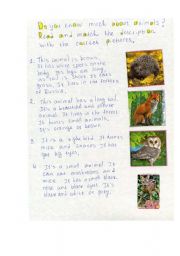 Do you know much about animals?
Read and match the description
with the correct pictures.
1. This animal is brown.
It has white spots on the
body. It's legs are long
as well as It eats
grass. It lives in the forests
of Russia.
2. This animal has a long tail.
It's a beautiful and clever
animal. It lives in the forest
It hunts small animals.
It's orange or brown.
3. It's a bird. It hunts
mice and insects. It has
got big eyes.
4. It's a small animal. It
can eat mushrooms and
mice. It has a small black
nose and black eyes. It's
black and white or grey.